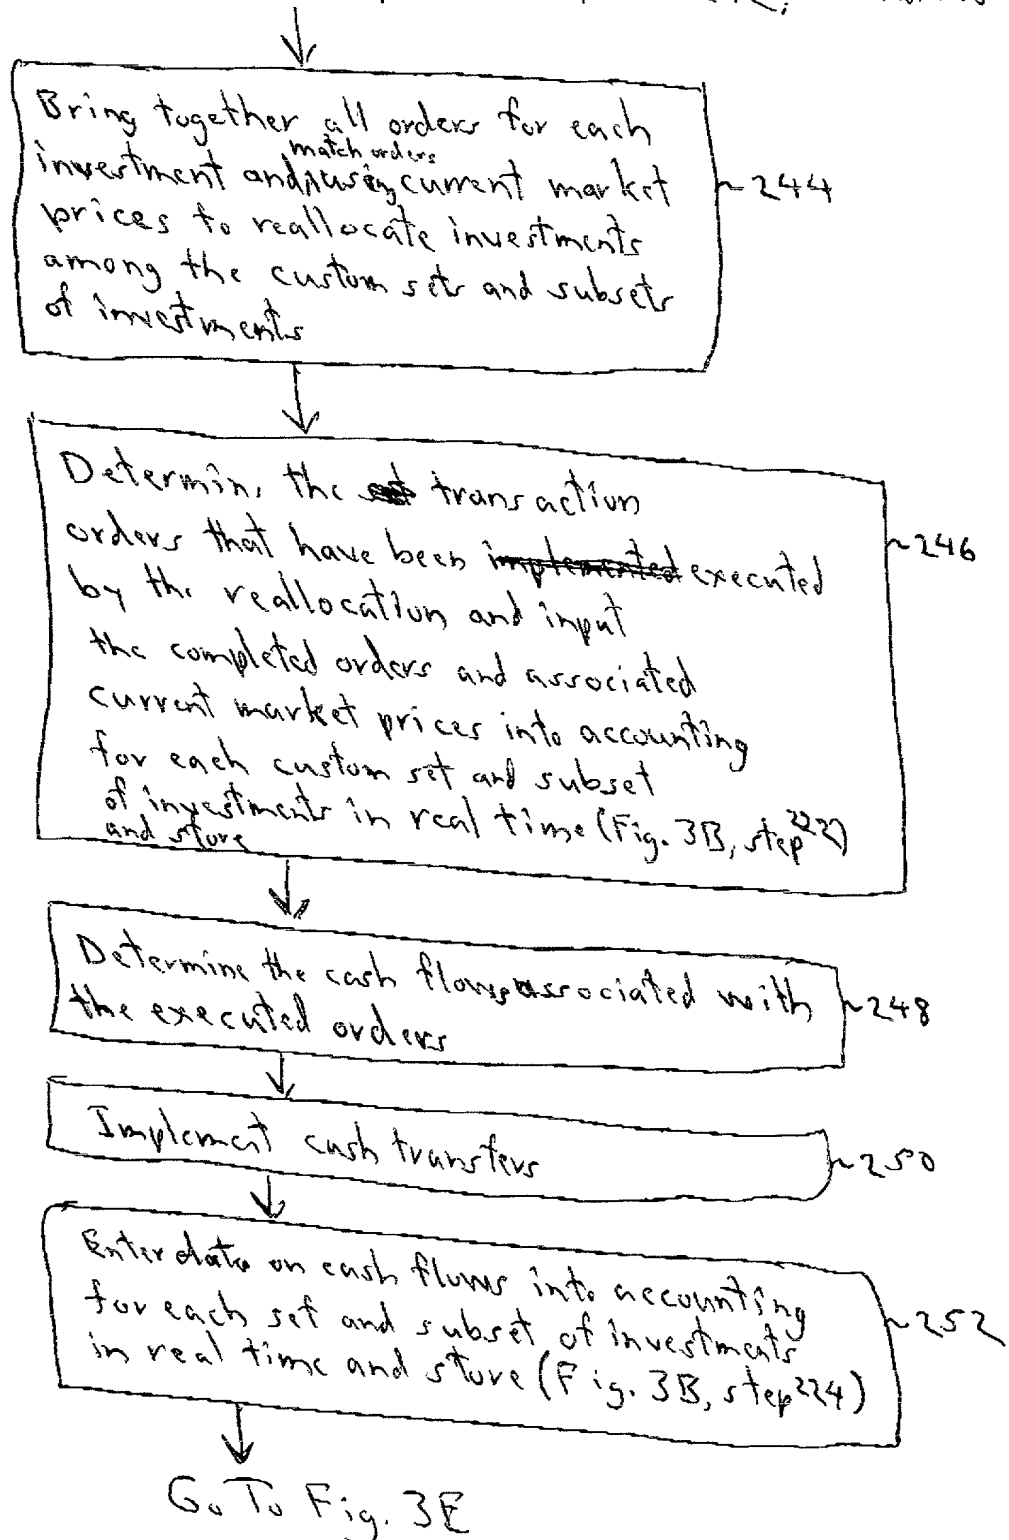 Bring together all orders for each
match orders
investment and using current market
prices to reallocate investments
among the custom sets and subsets
of investments
~244
Determine the transaction
orders that have been implemented executed
by the reallocation and input
the completed orders and associated
current market prices into accounting
for each custom set and subset
of investments in real time (Fig. 3B, step 222)
and store
~246
Determine the cash flows associated with
the executed orders
~248
Implement cash transfers
~250
Enter data on cash flows into accounting
for each set and subset of investments
in real time and store (Fig. 3B, step 224)
~252
Go To Fig. 3E